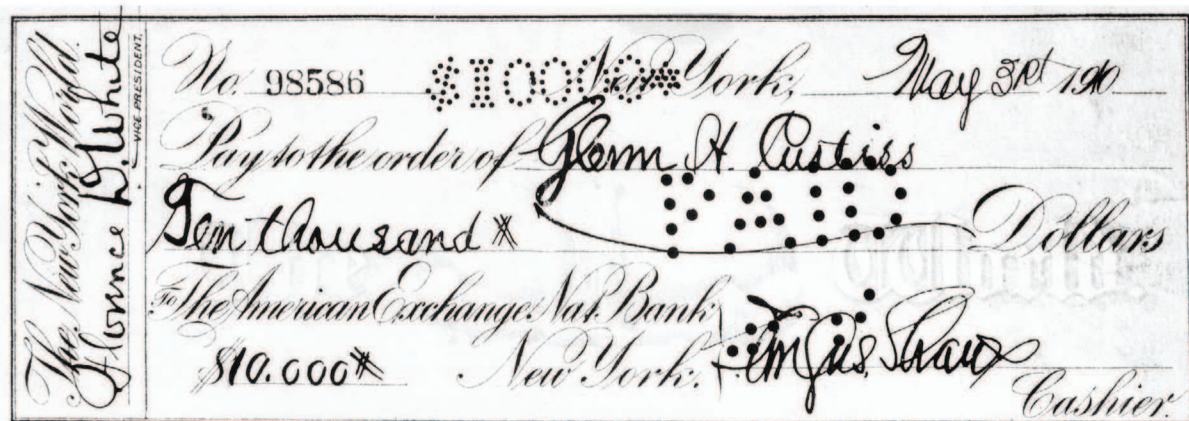 The New York World.
Florence D. White
VICE PRESIDENT.
No. 98586 $10000* New York, May 31st 1910
Pay to the order of Glenn H. Curtiss
PAID
Ten thousand * Dollars
To The American Exchange Nat. Bank
$10.000* New York.
Cashier.